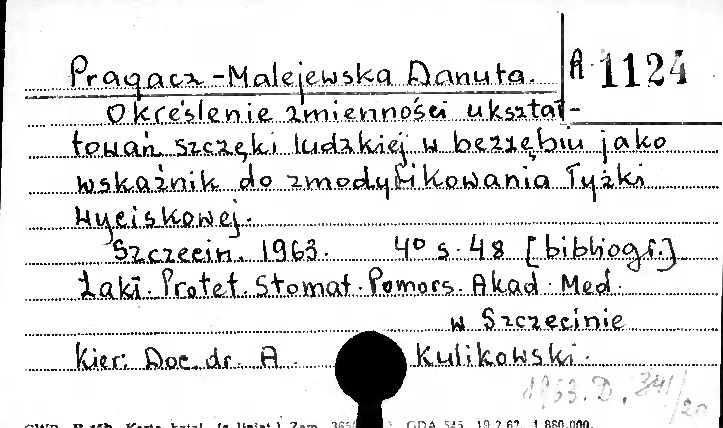 Pragacz-Malejewska Danuta. A 1124
Określenie zmienności ukształ-
towań szczęki ludzkiej w bezzębiu jako
wskaźnik do zmodyfikowania łyżki
wyciskowej.
Szczecin. 1963. 4° s. 48 [bibliogr.]
Zakł. Protet. Stomat. Pomors. Akad. Med.
w Szczecinie
kier: Doc. dr. A. Kulikowski.
1963.D. 341/20
Zam. GDA 545 19.2.62. 1.880.000.